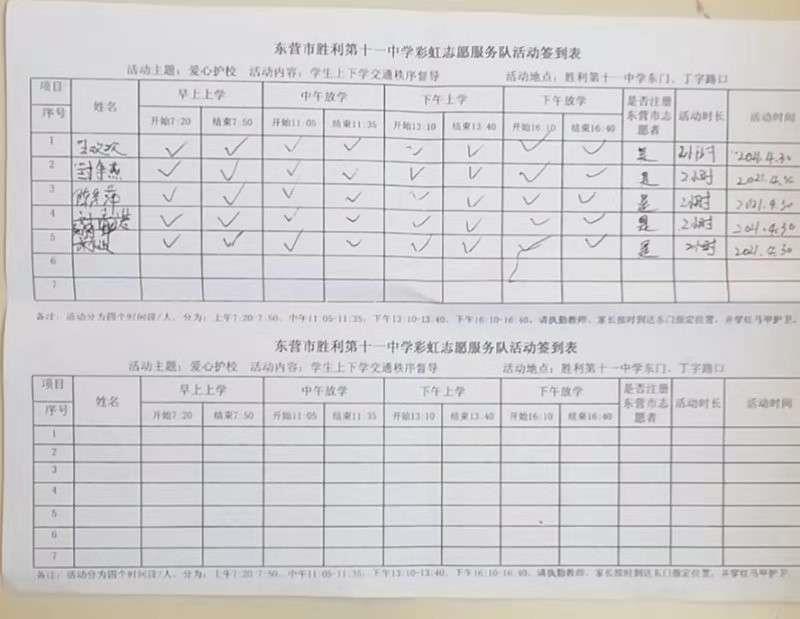 东营市胜利第十一中学彩虹志愿服务队活动签到表
活动主题：爱心护校 活动内容：学生上下学交通秩序督导 活动地点：胜利第十一中学东门、丁字路口
项目 姓名 早上上学 中午放学 下午上学 下午放学 是否注册东营市志愿者 活动时长 活动时间
序号 开始7:20 结束7:50 开始11:05 结束11:35 开始13:10 结束13:40 开始16:10 结束16:40
1 ✓ ✓ ✓ ✓ ✓ ✓ ✓ ✓ 是 2小时 2021.4.30
2 ✓ ✓ ✓ ✓ ✓ ✓ ✓ ✓ 是 2小时 2021.4.30
3 ✓ ✓ ✓ ✓ ✓ ✓ ✓ ✓ 是 2小时 2021.4.30
4 ✓ ✓ ✓ ✓ ✓ ✓ ✓ ✓ 是 2小时 2021.4.30
5 ✓ ✓ ✓ ✓ ✓ ✓ ✓ ✓ 是 2小时 2021.4.30
6
7
备注：活动分为四个时间段/人，分为：上午7:20-7:50、中午11:05-11:35、下午13:10-13:40、下午16:10-16:40，请执勤教师、家长按时到达东门指定位置，并穿红马甲护卫。
东营市胜利第十一中学彩虹志愿服务队活动签到表
活动主题：爱心护校 活动内容：学生上下学交通秩序督导 活动地点：胜利第十一中学东门、丁字路口
项目 姓名 早上上学 中午放学 下午上学 下午放学 是否注册东营市志愿者 活动时长 活动时间
序号 开始7:20 结束7:50 开始11:05 结束11:35 开始13:10 结束13:40 开始16:10 结束16:40
1
2
3
4
5
6
7
备注：活动分为四个时间段/人，分为：上午7:20-7:50、中午11:05-11:35、下午13:10-13:40、下午16:10-16:40，请执勤教师、家长按时到达东门指定位置，并穿红马甲护卫